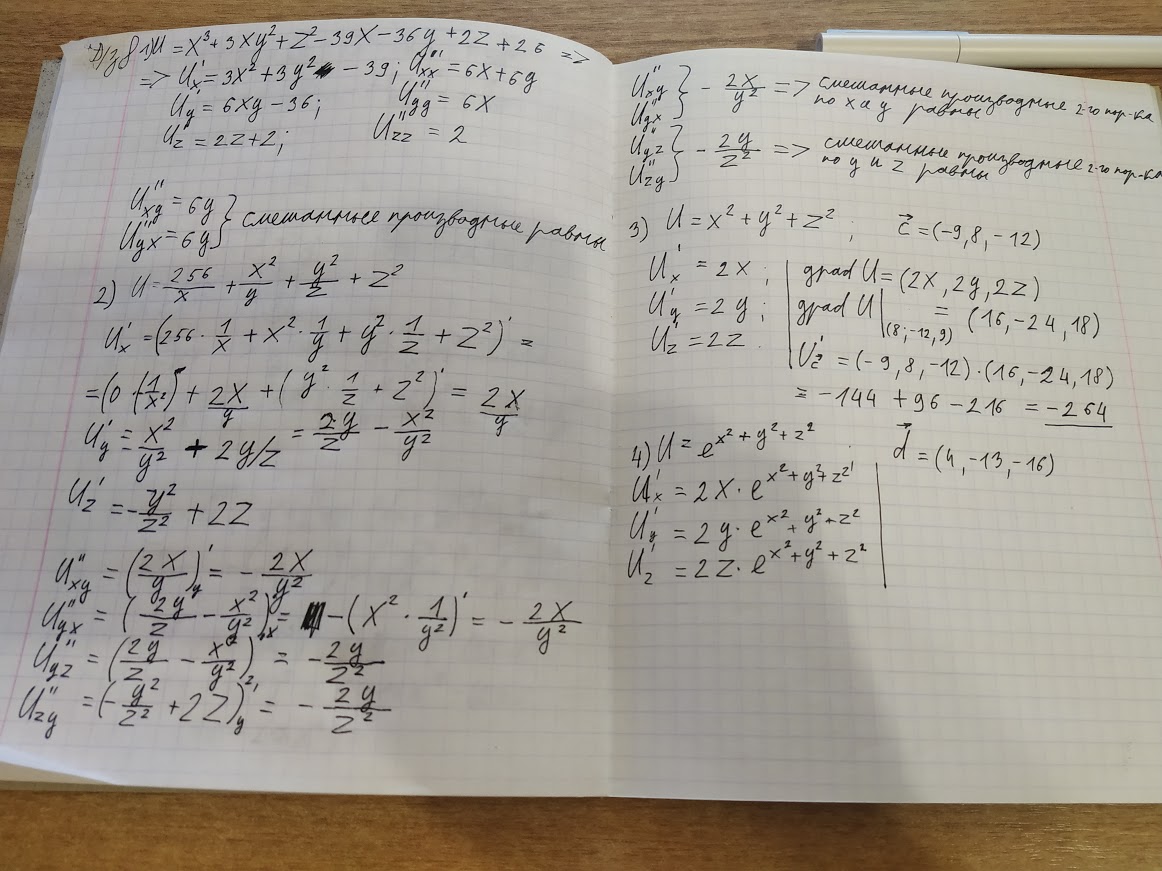 Д/з 8 1) U = x³ + 3xy² + z² - 39x - 36y + 2z + 26 =>
=> U'x = 3x² + 3y² - 39; U''xx = 6x + 6y
U'y = 6xy - 36; U''yy = 6x
U'z = 2z + 2; U''zz = 2
U''xy = 6y
U''yx = 6y } смешанные производные равны
2) U = 256/x + x²/y + y²/z + z²
U'x = (256 · 1/x + x² · 1/y + y² · 1/z + z²)' =
= (0 · (1/x²)) + 2x/y + (y² · 1/z + z²)' = 2x/y
U'y = x²/y² + 2y/z = 2y/z - x²/y²
U'z = -y²/z² + 2z
U''xy = (2x/y)'y = - 2x/y²
U''yx = (2y/z - x²/y²)'x = -(x² · 1/y²)' = - 2x/y²
U''yz = (2y/z - x²/y²)'z = - 2y/z²
U''zy = (-y²/z² + 2z)'y = - 2y/z²
U''xy
U''yx } - 2x/y² => смешанные производные 2-го пор-ка
по x и y равны
U''yz
U''zy } - 2y/z² => смешанные производные 2-го пор-ка
по y и z равны
3) U = x² + y² + z², c⃗ = (-9, 8, -12)
U'x = 2x; grad U = (2x, 2y, 2z)
U'y = 2y; grad U|(8;-12,9) = (16, -24, 18)
U'z = 2z. U'c⃗ = (-9, 8, -12) · (16, -24, 18)
= -144 + 96 - 216 = -264
4) U = e^(x² + y² + z²) d⃗ = (4, -13, -16)
U'x = 2x · e^(x² + y² + z²)
U'y = 2y · e^(x² + y² + z²)
U'z = 2z · e^(x² + y² + z²)